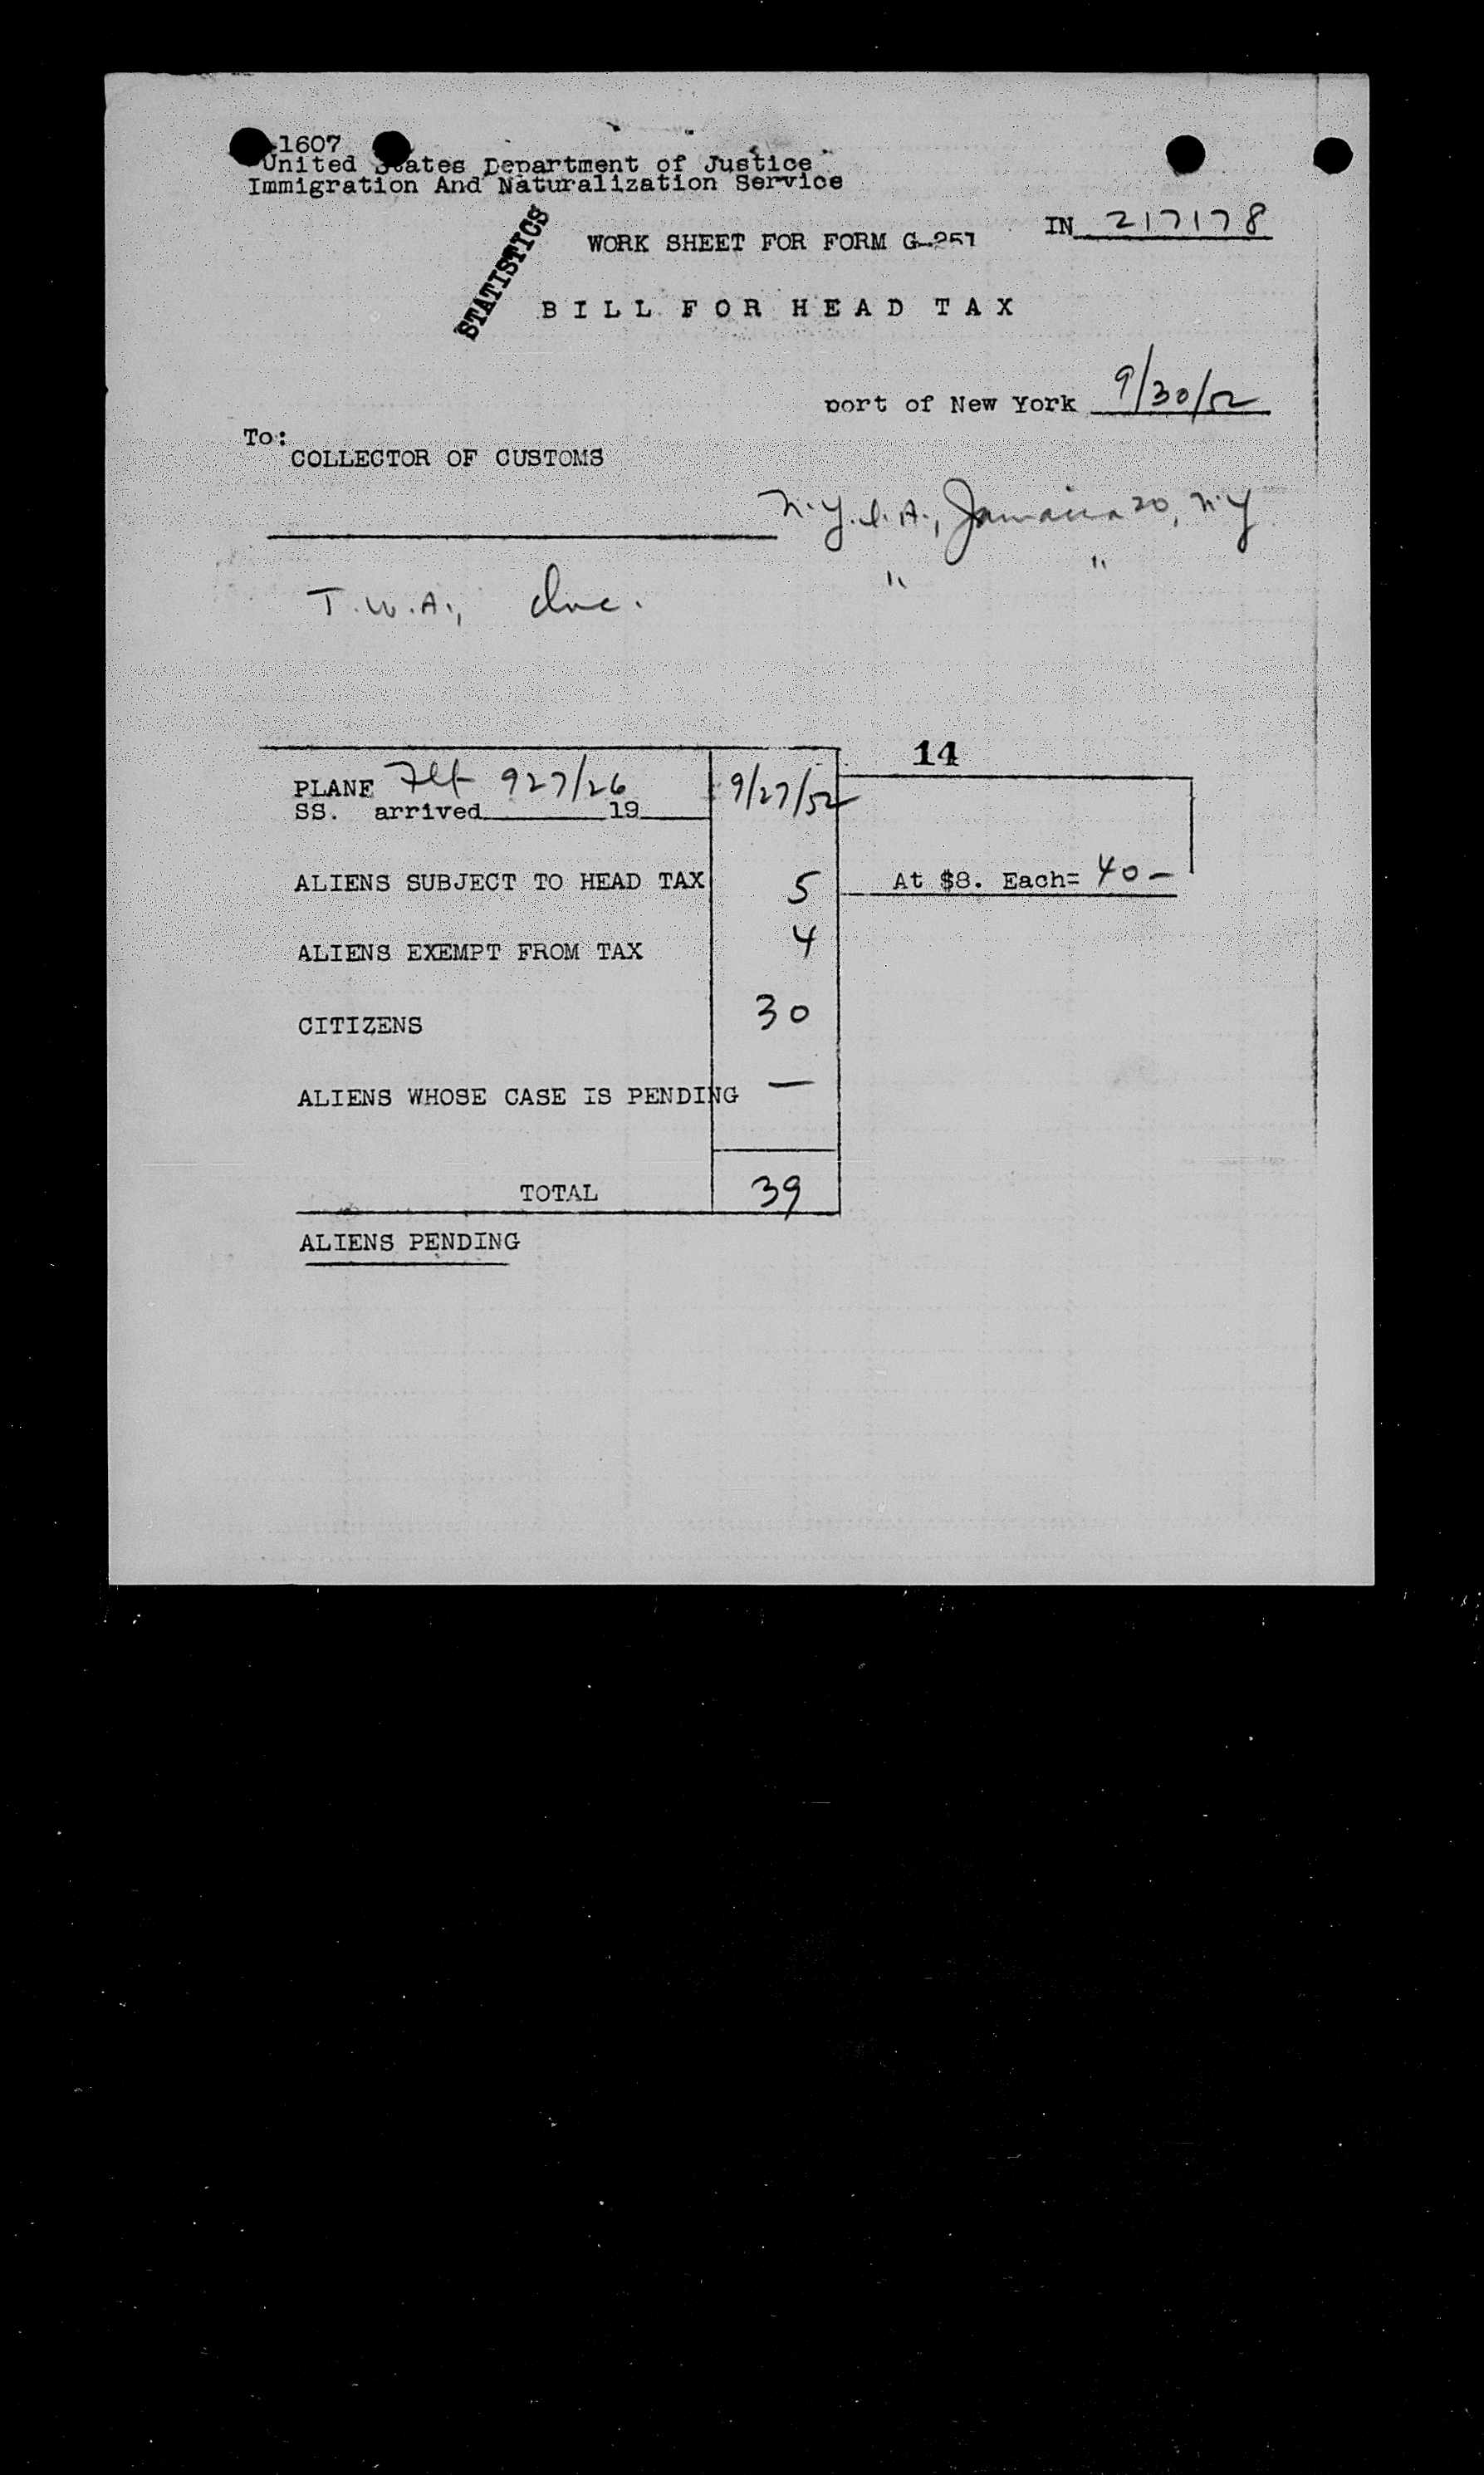 1607
United States Department of Justice
Immigration And Naturalization Service
IN 217178
STATISTICS
WORK SHEET FOR FORM G-251
BILL FOR HEAD TAX
port of New York 9/30/52
To:
COLLECTOR OF CUSTOMS
N.Y.I.A., Jamaica 20, N.Y
T.W.A., Inc. " "
14
PLANE Flt 927/26 9/27/52
SS. arrived 19
ALIENS SUBJECT TO HEAD TAX 5 At $8. Each= 40-
ALIENS EXEMPT FROM TAX 4
CITIZENS 30
ALIENS WHOSE CASE IS PENDING —
TOTAL 39
ALIENS PENDING